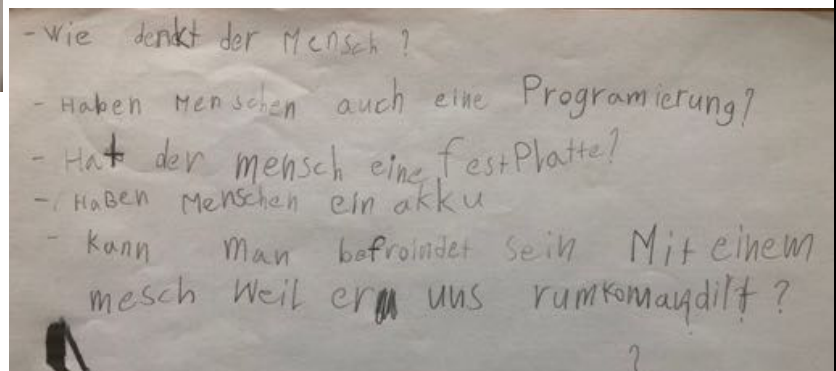 - Wie denkt der Mensch?
- Haben Menschen auch eine Programierung?
- Hat der mensch eine festPlatte?
- Haben Menschen ein akku
- kann man befroindet sein Mit einem
mesch Weil er uns rumkomandilt?
?